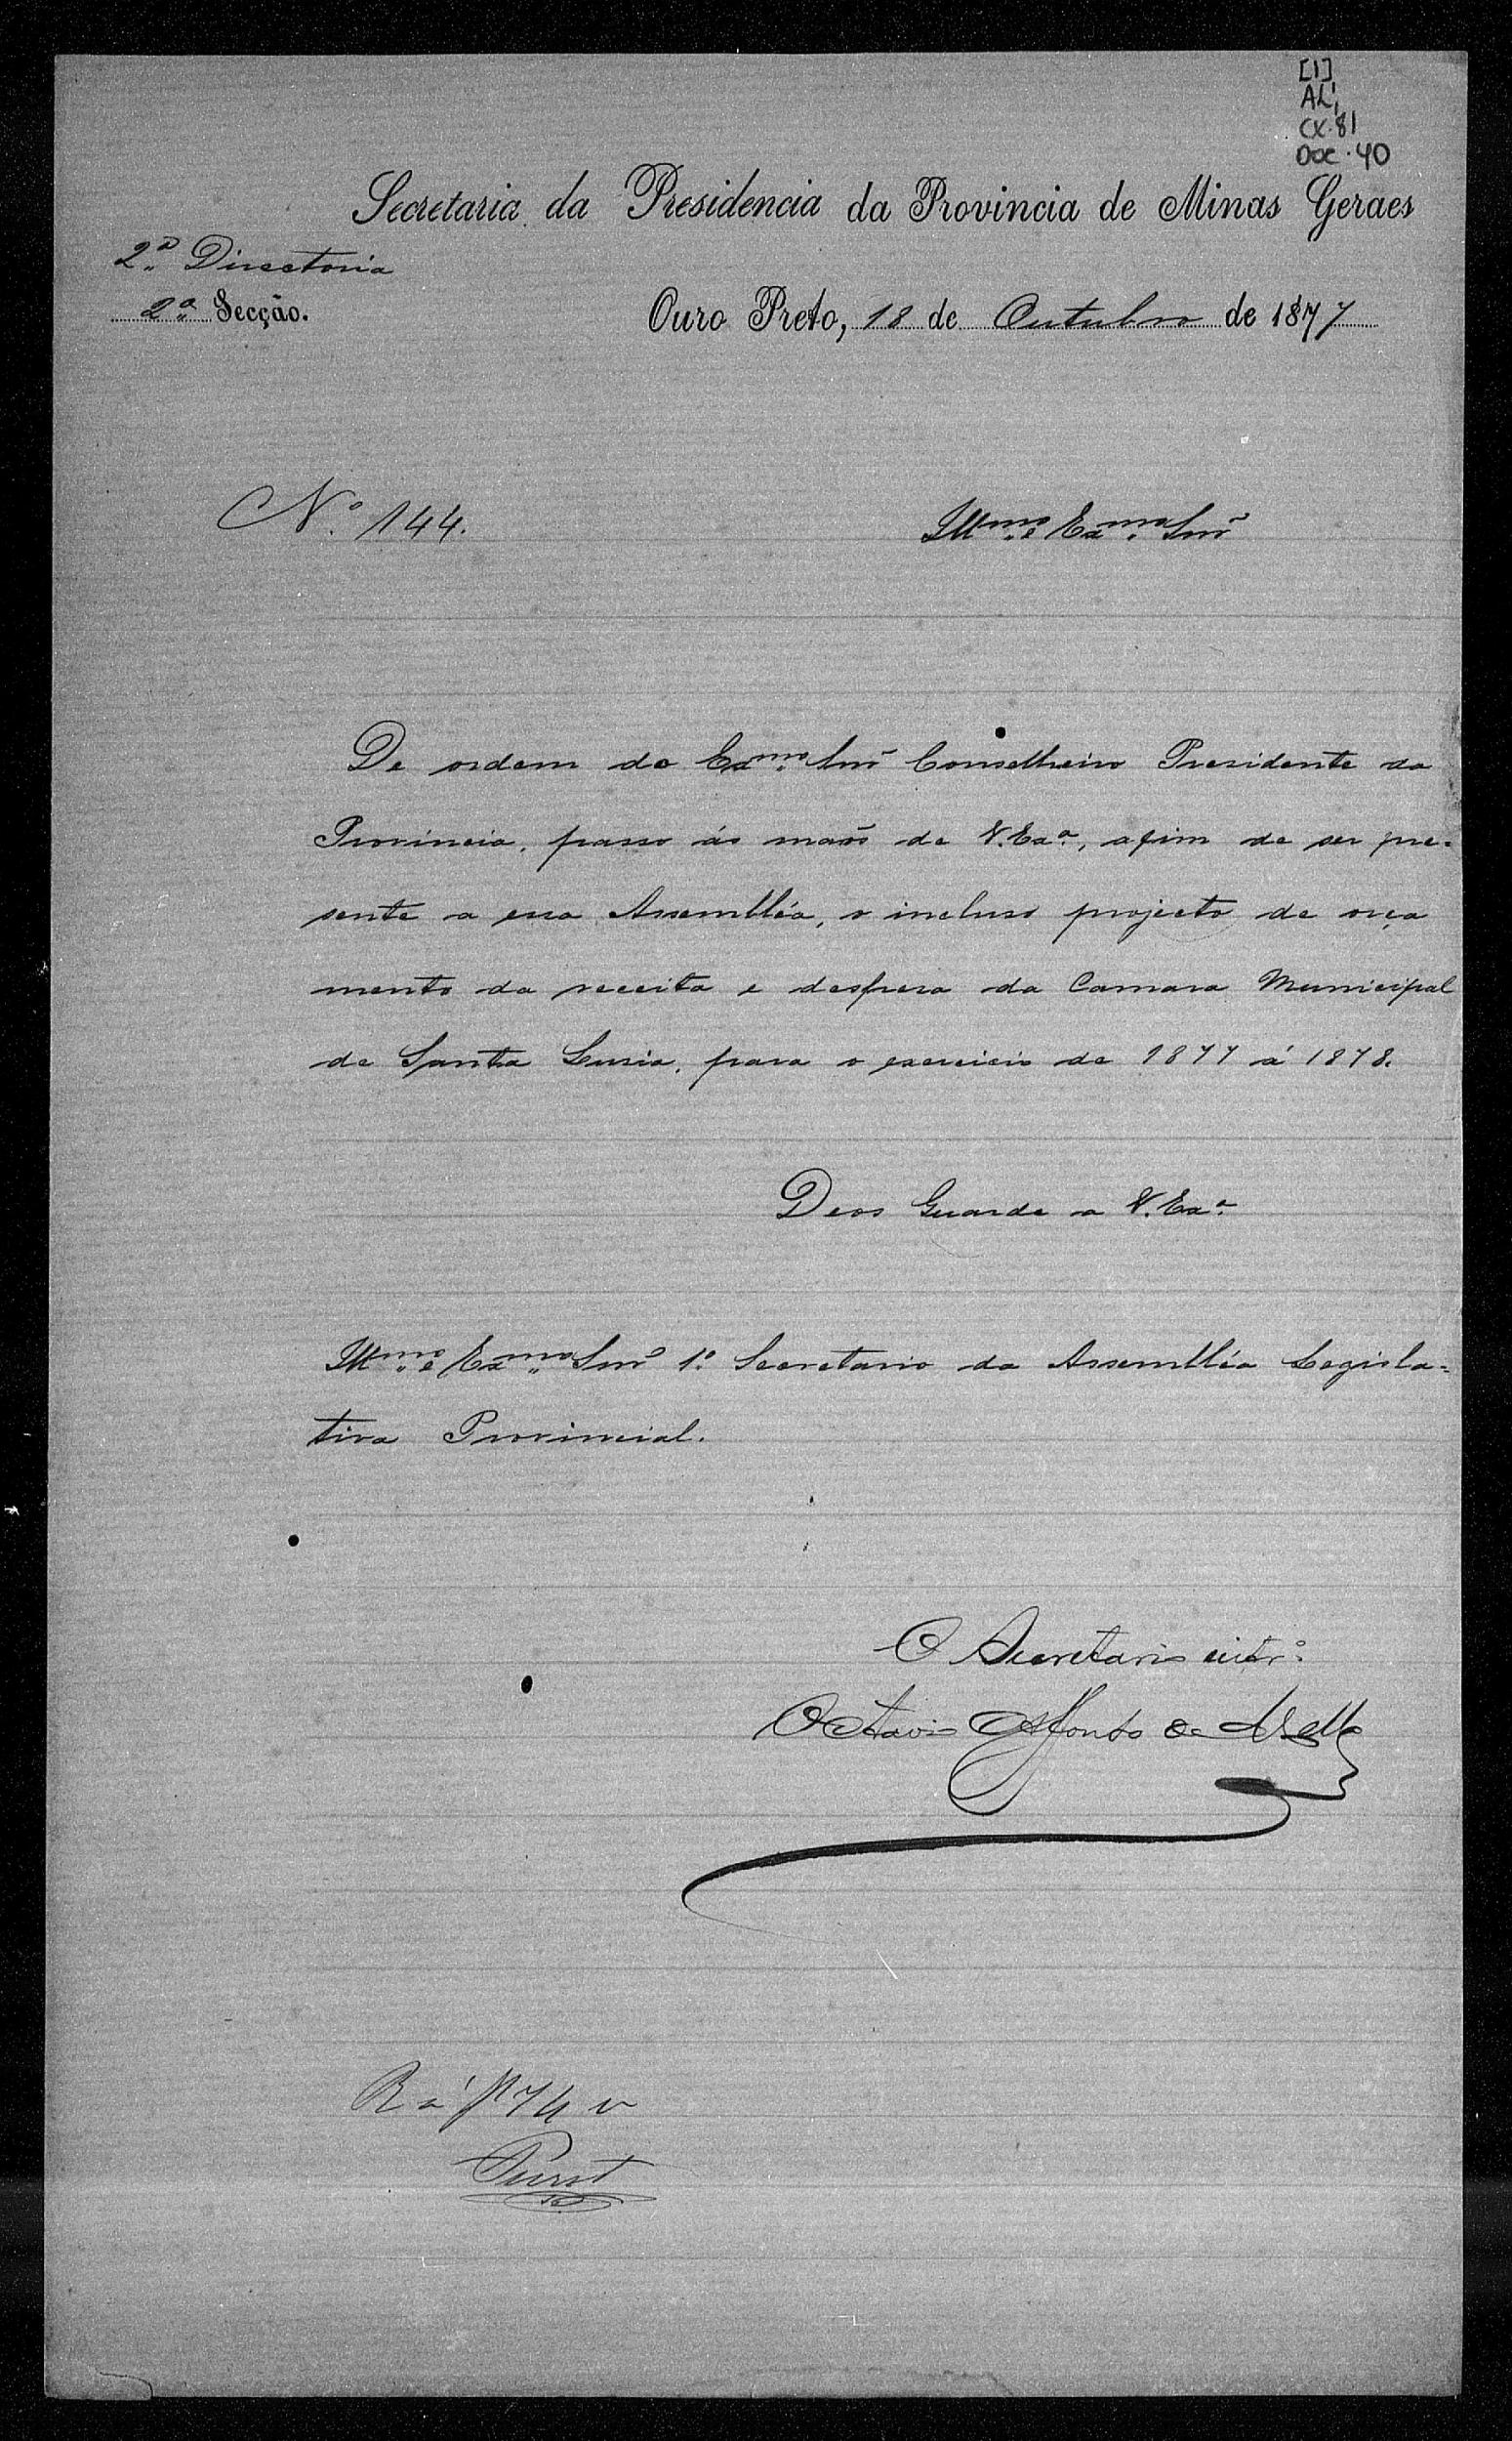 [1]
AL,
CX.81
Doc.40
Secretaria da Presidencia da Provincia de Minas Geraes
2.ª Directoria
2.ª Secção.
Ouro Preto, 18 de Outubro de 1877
N.º 144.
Ill.mo e Ex.mo Snr̃
De ordem do Ex.mo Snr̃ Conselheiro Presidente da
Provincia, passo ás maõs de V. Ex.ª, afim de ser pre-
sente a essa Assembléa, o incluso projecto de orça
mento da receita e despesa da Camara Municipal
de Santa Lusia, para o exercicio de 1877 á 1878.
Deos Guarde a V. Ex.ª
Ill.mo e Ex.mo Snr̃ 1.º Secretario da Assembléa Legisla-
tiva Provincial.
O Secretario inter.º
Octavio Affonso de Mello
R a f 74 v